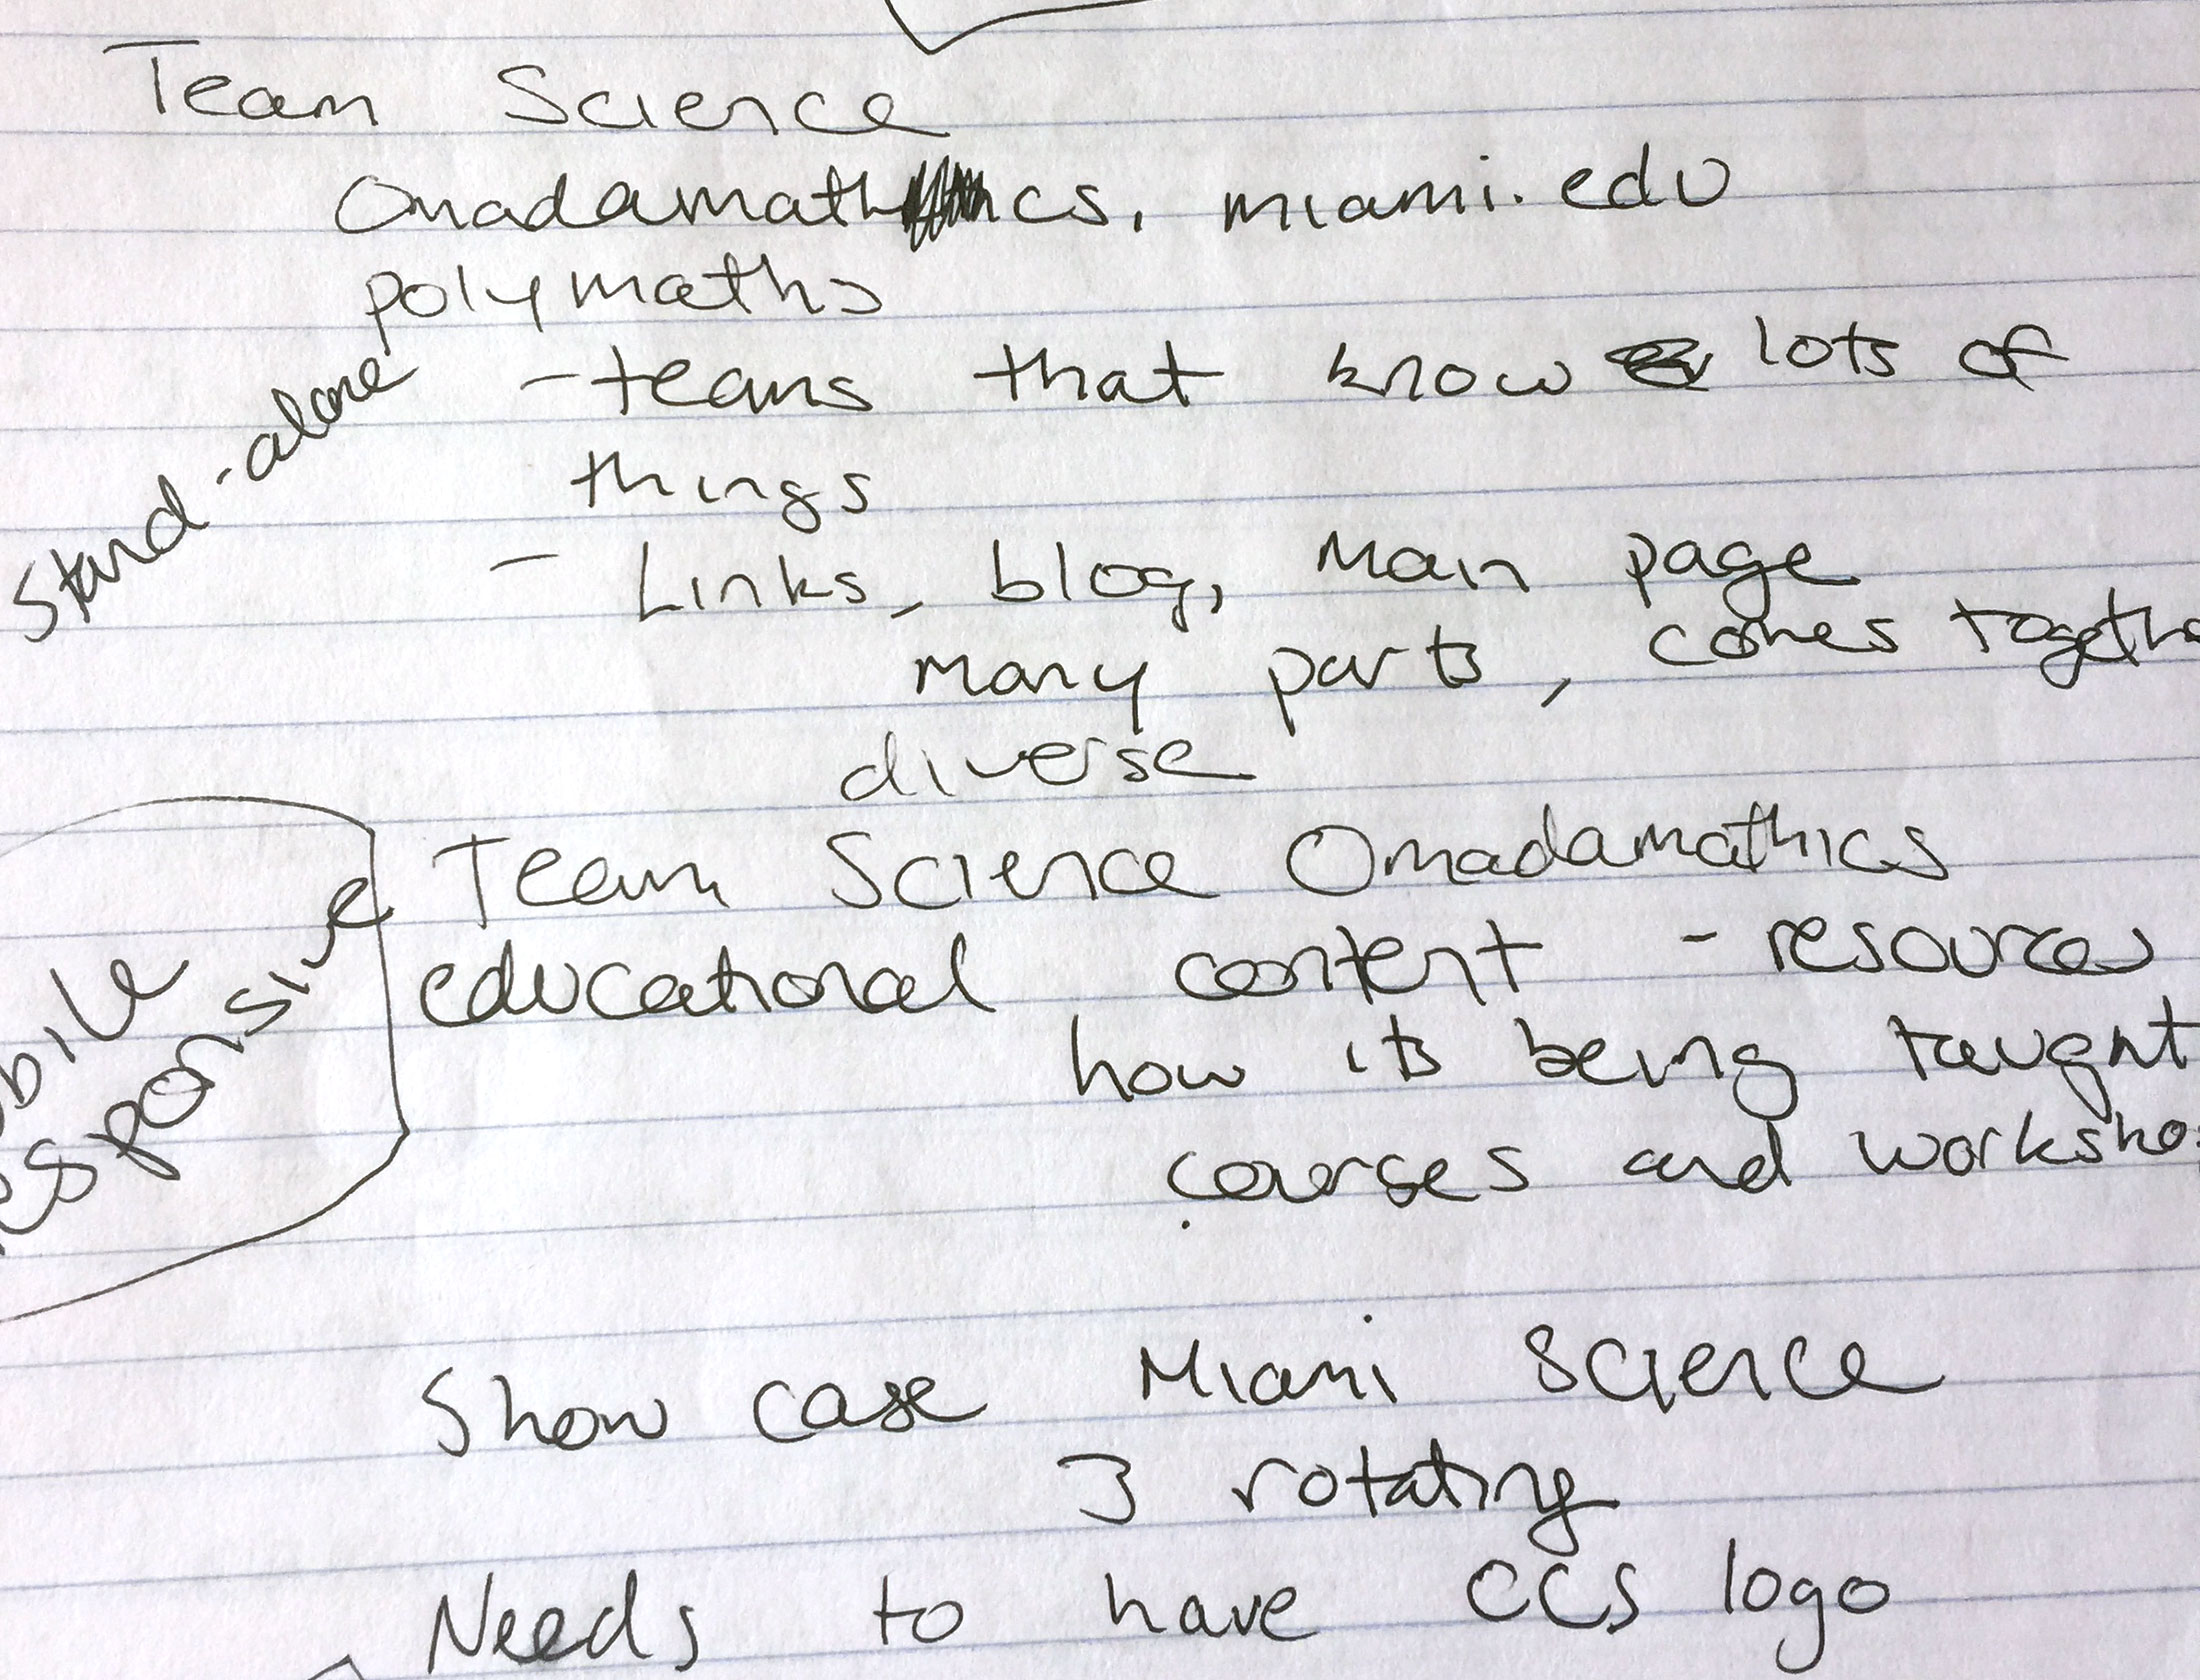 Team Science
Omadamathics. miami.edu
polymaths
Stand-alone
- teams that know lots of
things
- Links, blog, Main page
many parts, comes togethe
diverse
Team Science Omadamathics
educational content - resources
how its being taught
courses and worksho
bile
esponsive
Show case Miami Science
3 rotating
Needs to have CCS logo